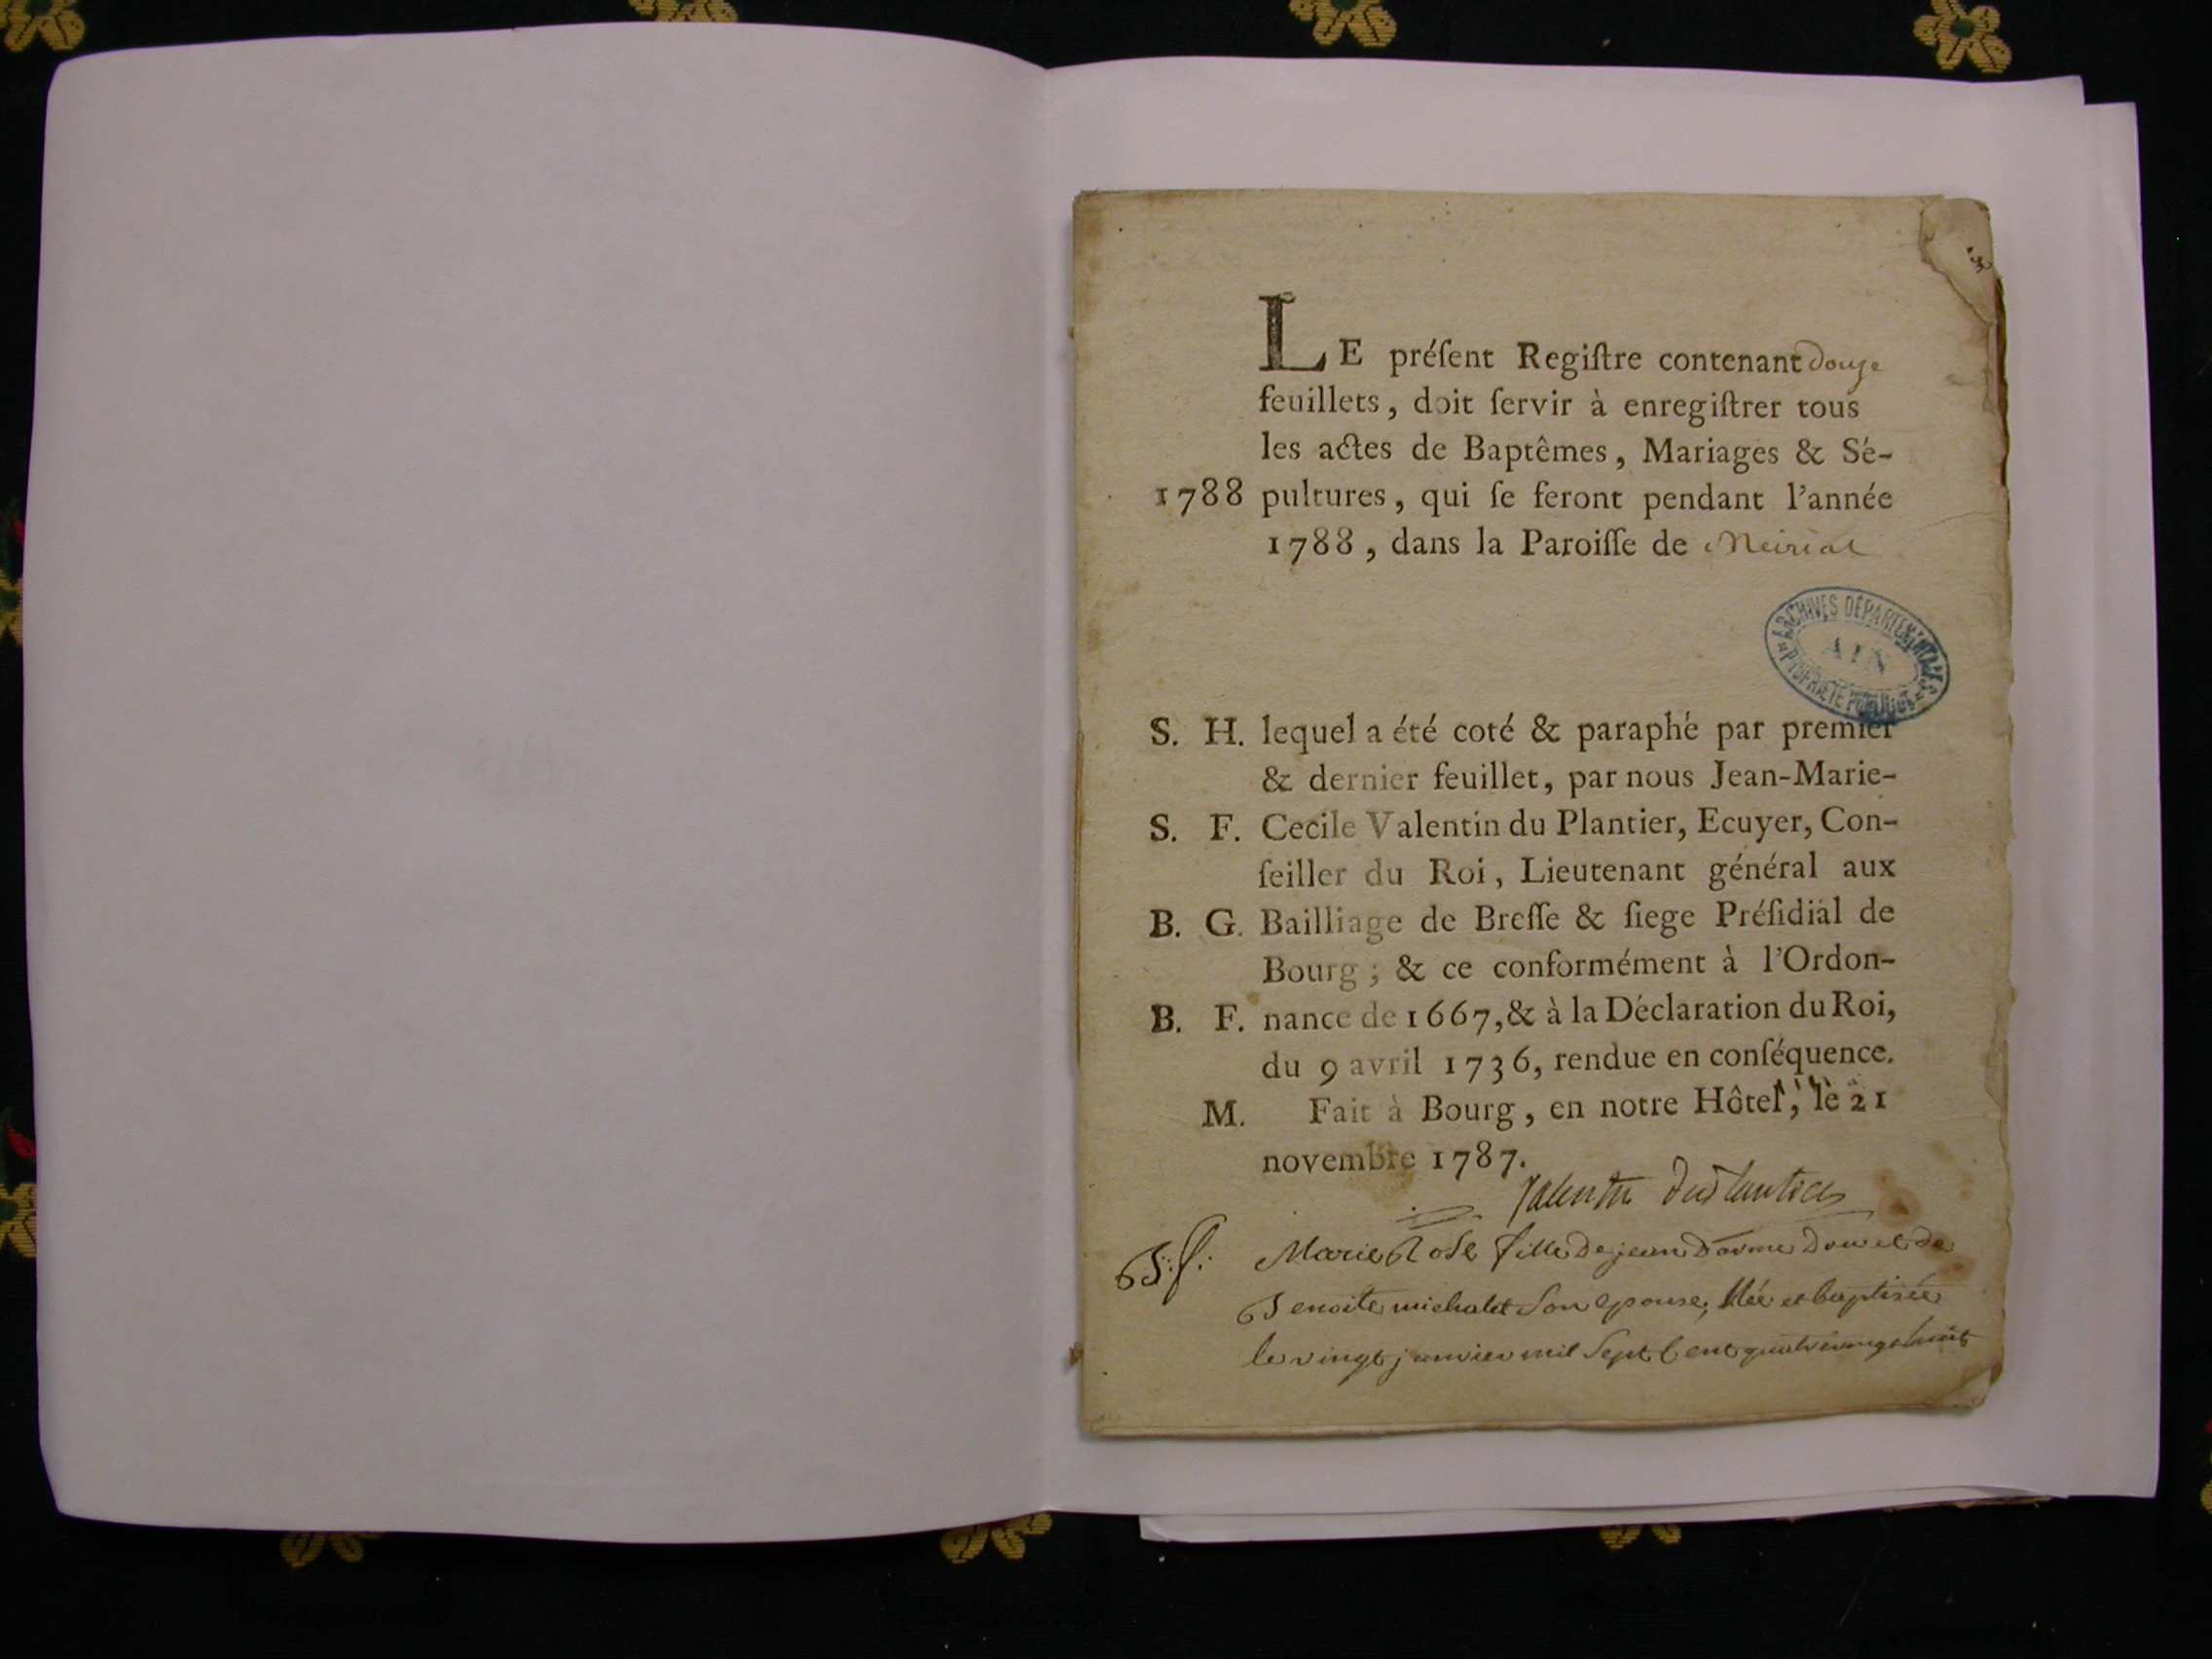 LE préſent Regiſtre contenant douze
feuillets, doit ſervir à enregiſtrer tous
les actes de Baptêmes, Mariages & Sé-
1788 pultures, qui ſe feront pendant l'année
1788, dans la Paroiſſe de Meiriat
ARCHIVES DÉPARTEMENTALES
AIN
PROPRIÉTÉ PUBLIQUE
S. H. lequel a été coté & paraphé par premier
& dernier feuillet, par nous Jean-Marie-
S. F. Cecile Valentin du Plantier, Ecuyer, Con-
ſeiller du Roi, Lieutenant général aux
B. G. Bailliage de Breſſe & ſiege Préſidial de
Bourg; & ce conformément à l'Ordon-
B. F. nance de 1667, & à la Déclaration du Roi,
du 9 avril 1736, rendue en conſéquence.
M. Fait à Bourg, en notre Hôtel, le 21
novembre 1787.
Valentin duplantier
B. f. Marie Rose fille de jean et de
Benoite michalet Son epouse, Née et baptisée
le vingt janvier mil Sept Cent quatrevingt huit